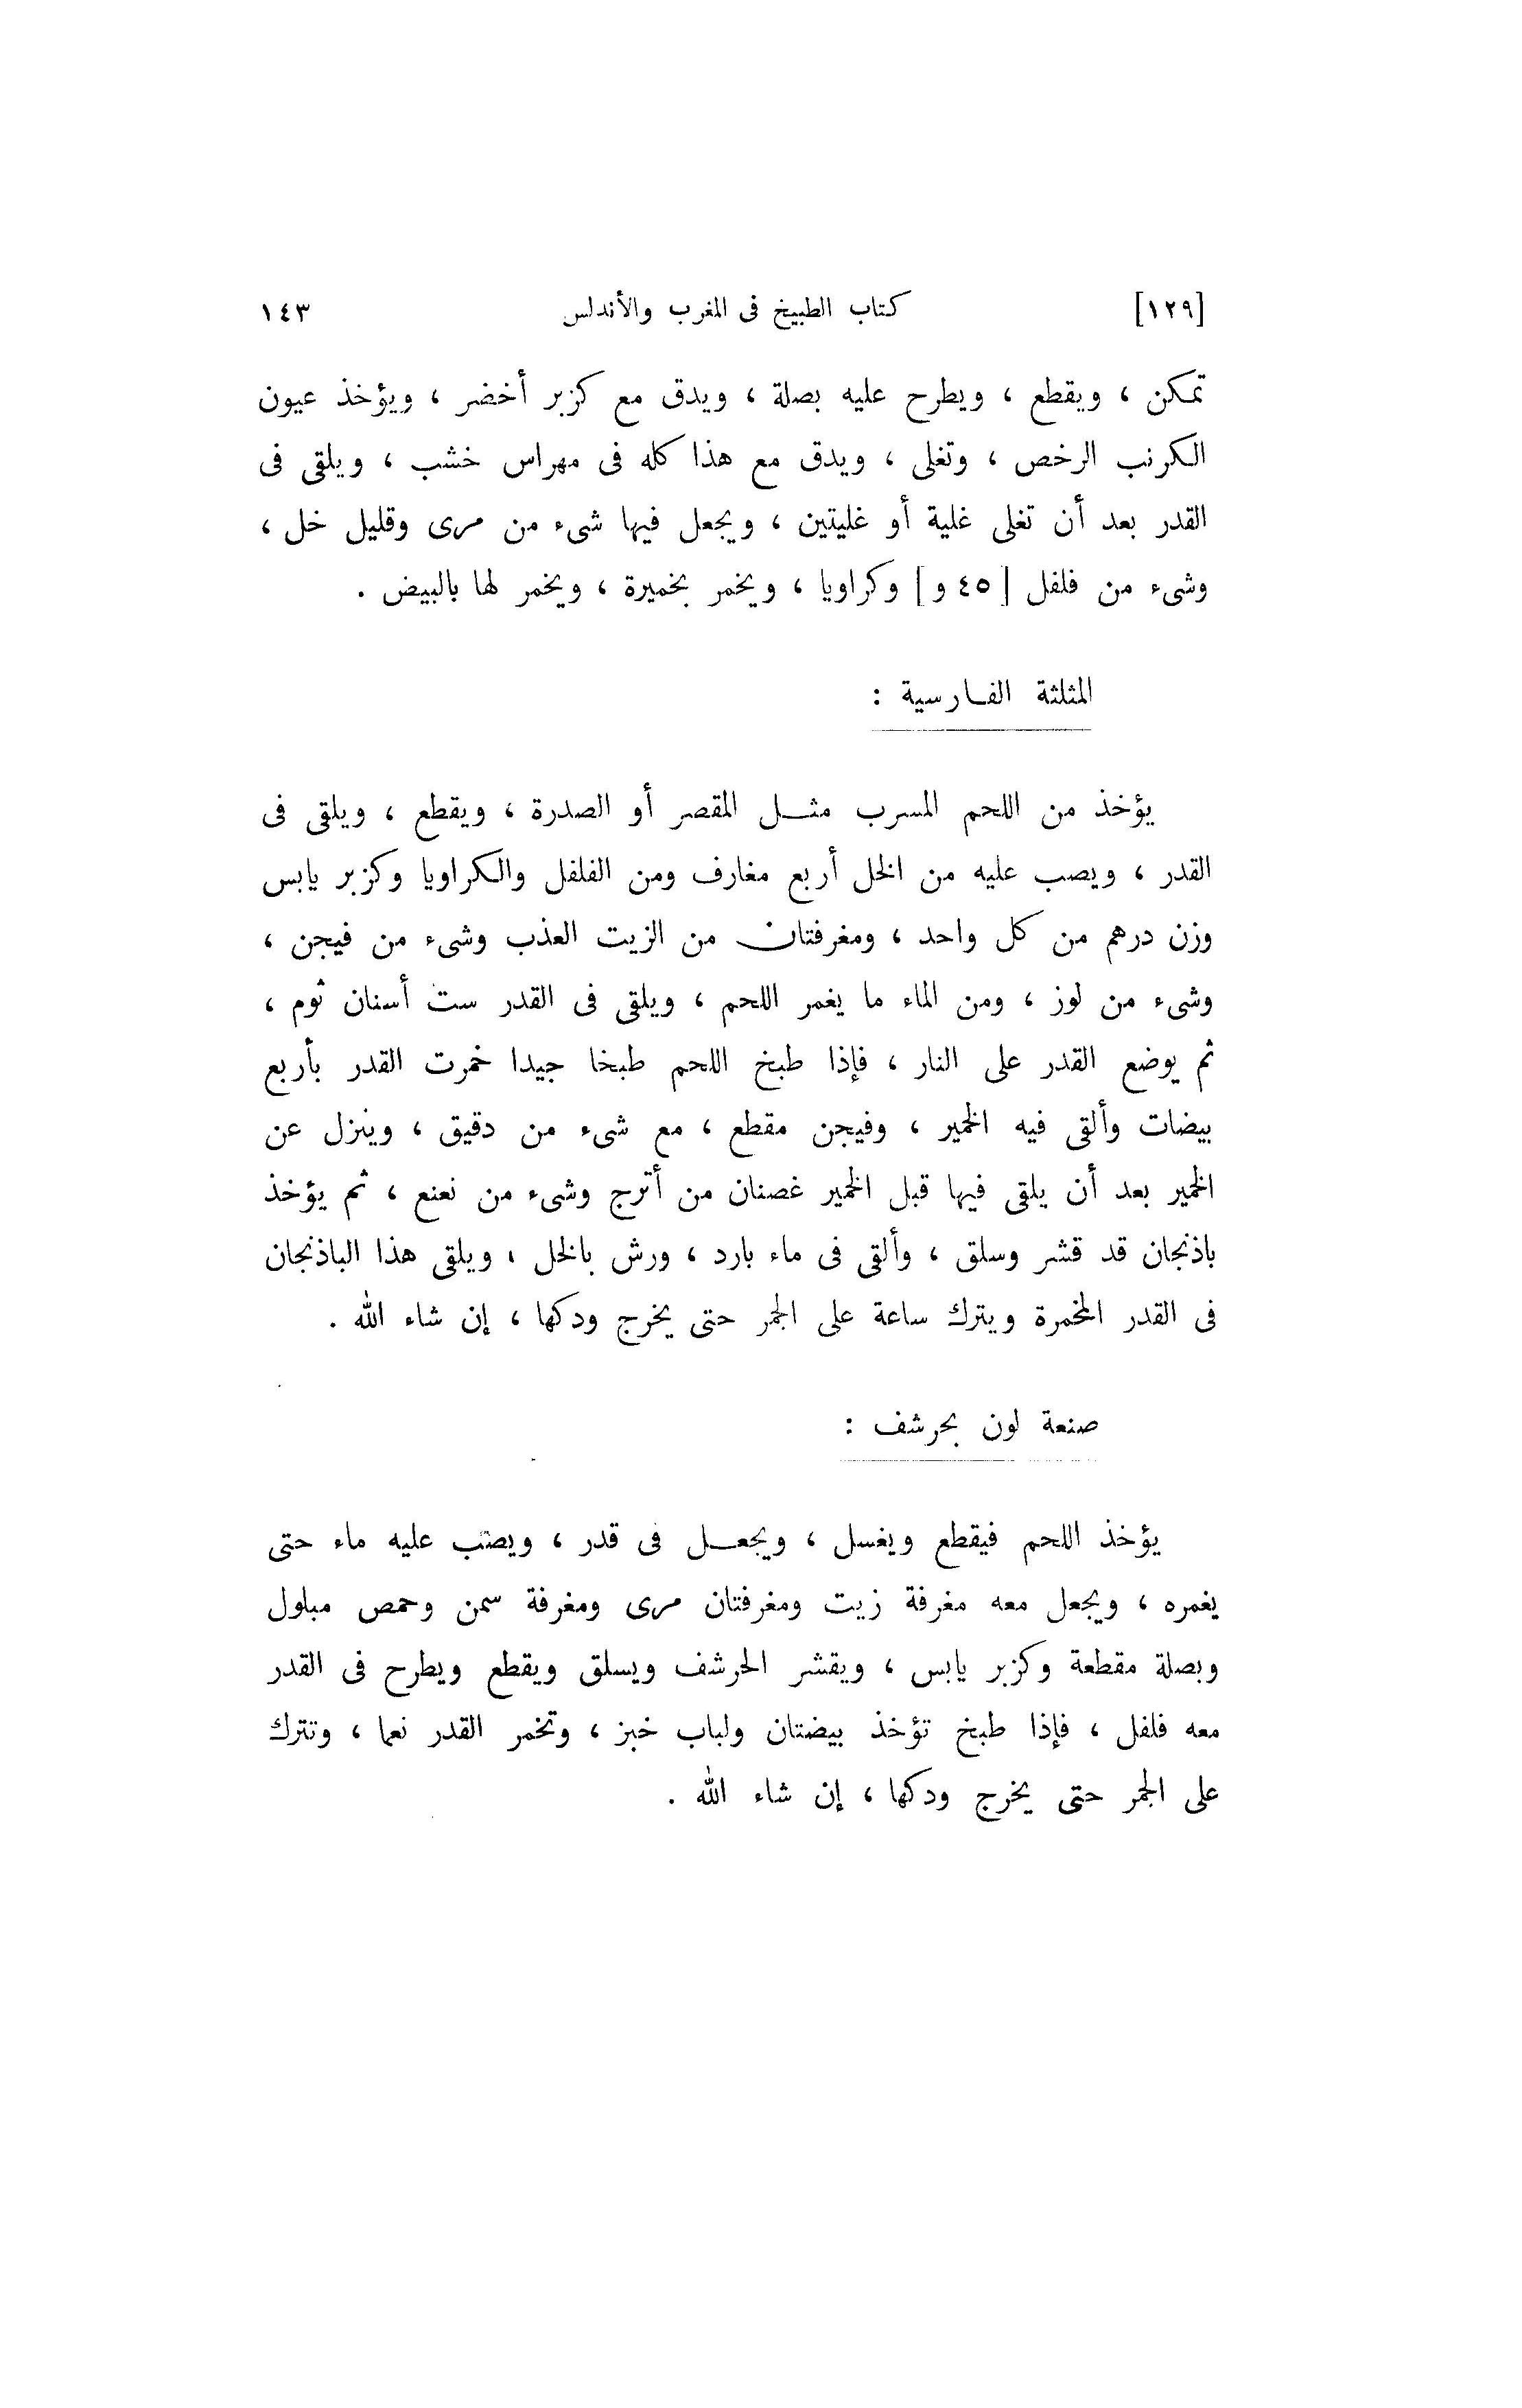 [١٢٩] كتاب الطبيخ فى المغرب والأندلس ١٤٣
تمكن ، ويقطع ، ويطرح عليه بصلة ، ويدق مع كزبر أخضر ، ويؤخذ عيون
الكرنب الرخص ، وتغلى ، ويدق مع هذا كله فى مهراس خشب ، ويلقى فى
القدر بعد أن تغلى غلية أو غليتين ، ويجعل فيها شىء من مرى وقليل خل ،
وشىء من فلفل [ ٤٥ و ] وكراويا ، ويخمر بخميرة ، ويخمر لها بالبيض .
المثلثة الفارسية :
يؤخذ من اللحم المسرب مثل المقصر أو الصدرة ، ويقطع ، ويلقى فى
القدر ، ويصب عليه من الخل أربع مغارف ومن الفلفل والكراويا وكزبر يابس
وزن درهم من كل واحد ، ومغرفتان من الزيت العذب وشىء من فيجن ،
وشىء من لوز ، ومن الماء ما يغمر اللحم ، ويلقى فى القدر ست أسنان ثوم ،
ثم يوضع القدر على النار ، فإذا طبخ اللحم طبخا جيدا خمرت القدر بأربع
بيضات وألقى فيه الخمير ، وفيجن مقطع ، مع شىء من دقيق ، وينزل عن
الخمير بعد أن يلقى فيها قبل الخمير غصنان من أترج وشىء من نعنع ، ثم يؤخذ
باذنجان قد قشر وسلق ، وألقى فى ماء بارد ، ورش بالخل ، ويلقى هذا الباذنجان
فى القدر المخمرة ويترك ساعة على الجمر حتى يخرج ودكها ، إن شاء الله .
صنعة لون بحرشف :
يؤخذ اللحم فيقطع ويغسل ، ويجعل فى قدر ، ويصب عليه ماء حتى
يغمره ، ويجعل معه مغرفة زيت ومغرفتان مرى ومغرفة سمن وحمص مبلول
وبصلة مقطعة وكزبر يابس ، ويقشر الحرشف ويسلق ويقطع ويطرح فى القدر
معه فلفل ، فإذا طبخ تؤخذ بيضتان ولباب خبز ، وتخمر القدر نعما ، وتترك
على الجمر حتى يخرج ودكها ، إن شاء الله .